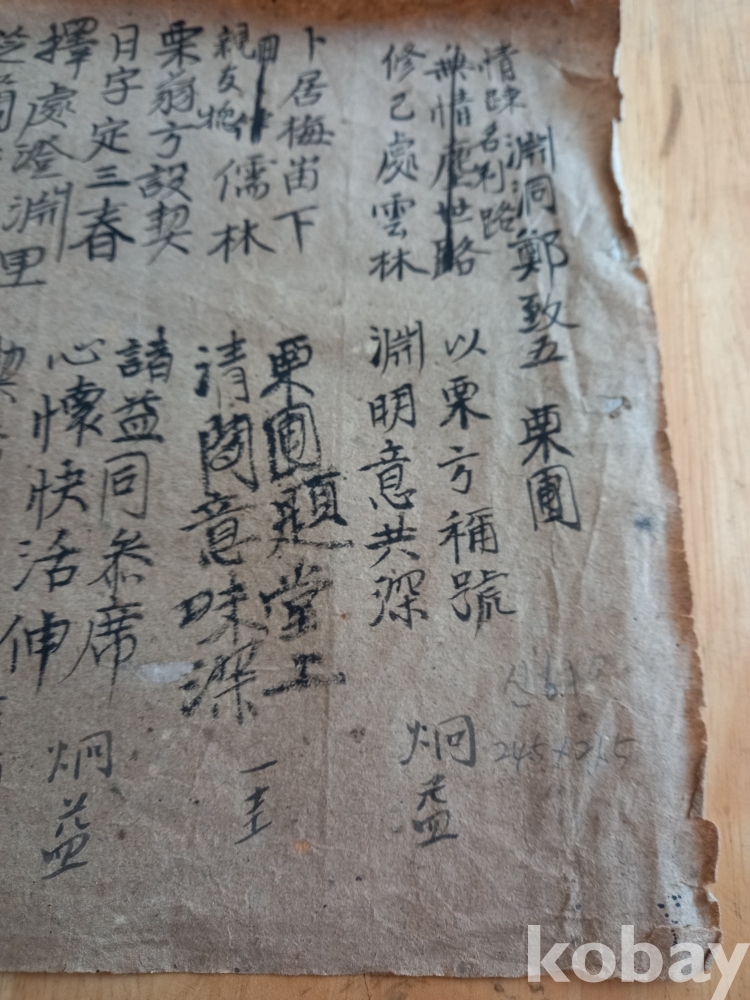 淵洞鄭致五 栗圃
情疎名利路
無情應世路 以栗方稱號
修己處雲林 淵明意共深
炯益
卜居梅峀下 栗圃題堂上
親友摠儒林 清閒意味深
一圭
栗翁方設契 諸益同參席
日字定三春 心懷快活伸
炯益
擇處澄淵里
245×265
kobay